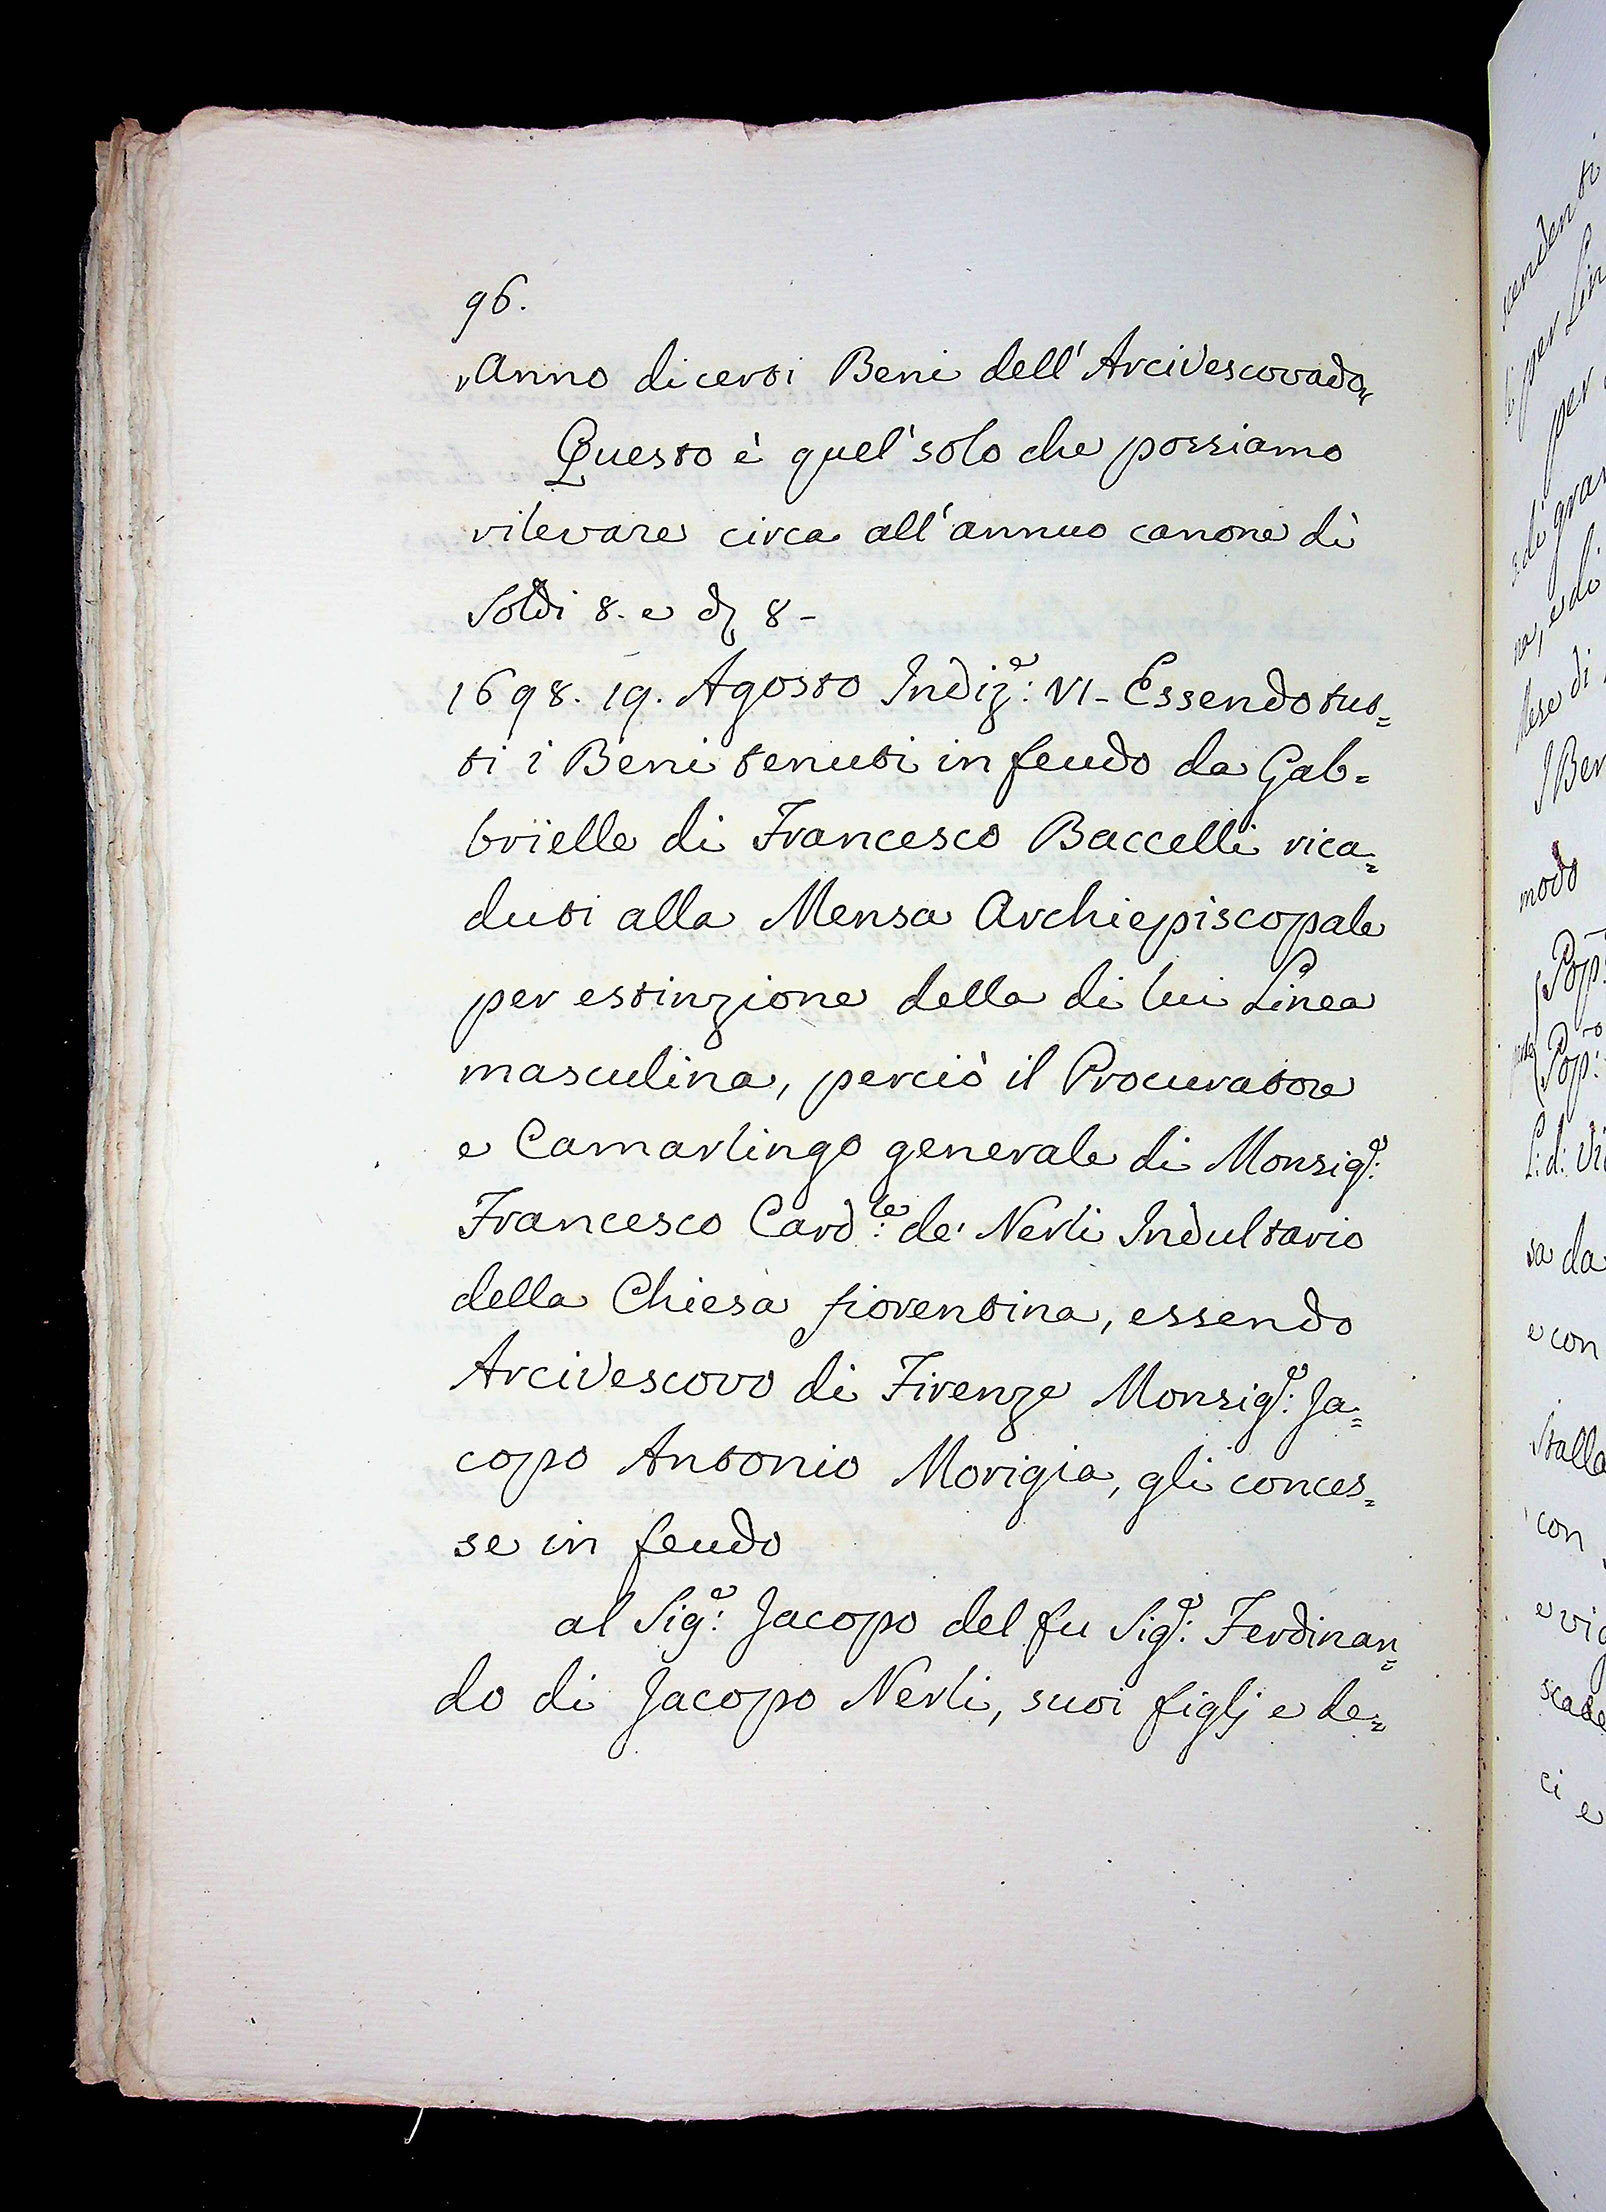 96.
„Anno di certi Beni dell' Arcivescovado„
Questo è quel' solo che possiamo
rilevare circa all' annuo canone di
Soldi 8. e d 8 -
1698. 19. Agosto Indizᵉ: VI - Essendo tut=
ti i Beni tenuti in feudo da Gab=
brielle di Francesco Baccelli rica=
duti alla Mensa Archiepiscopale
per estinzione della di lui Linea
masculina, perciò il Procuratore
e Camarlingo generale di Monsigʳ:
Francesco Cardˡᵉ: de' Nerli Indultario
della Chiesa fiorentina, essendo
Arcivescovo di Firenze Monsigʳ: Ja=
copo Antonio Morigia, gli conces=
se in feudo
al Sigʳ: Jacopo del fu Sigʳ: Ferdinan=
do di Jacopo Nerli, suoi figlj e de=
scendenti
per Lin
per
di gran
na, e di
Mese di
J Ben
modo
Pop:
Popᵒ:
L: d: Vi
sa da
e con
Stalla
con
e vig
scade
ci e